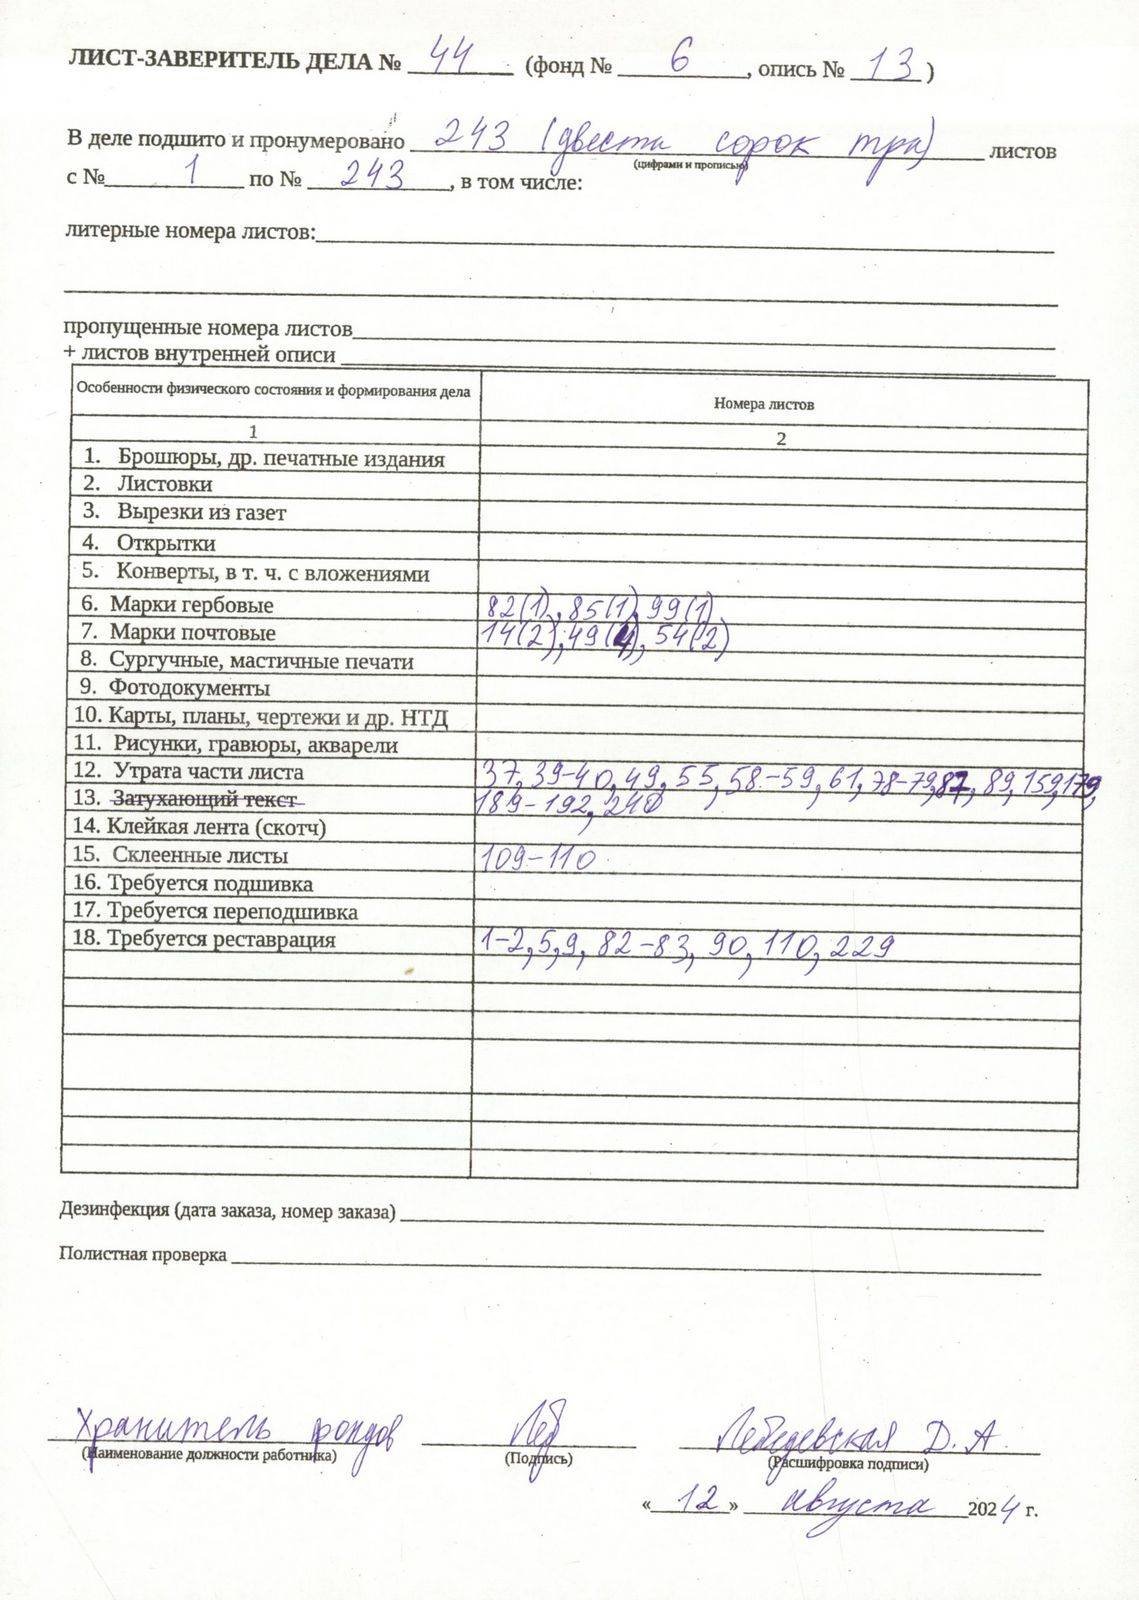 ЛИСТ-ЗАВЕРИТЕЛЬ ДЕЛА № 44 (фонд № 6, опись № 13)
В деле подшито и пронумеровано 243 (двести сорок три) листов
(цифрами и прописью)
с № 1 по № 243, в том числе:
литерные номера листов:
пропущенные номера листов
+ листов внутренней описи
Особенности физического состояния и формирования дела Номера листов
1 2
1. Брошюры, др. печатные издания
2. Листовки
3. Вырезки из газет
4. Открытки
5. Конверты, в т. ч. с вложениями
6. Марки гербовые 82(1), 85(1), 99(1)
7. Марки почтовые 14(2), 49(4), 54(2)
8. Сургучные, мастичные печати
9. Фотодокументы
10. Карты, планы, чертежи и др. НТД
11. Рисунки, гравюры, акварели
12. Утрата части листа 37, 39-40, 49, 55, 58-59, 61, 78-79, 87, 89, 159, 179,
13. Затухающий текст 189-192, 240
14. Клейкая лента (скотч)
15. Склеенные листы 109-110
16. Требуется подшивка
17. Требуется переподшивка
18. Требуется реставрация 1-2, 5, 9, 82-83, 90, 110, 229
Дезинфекция (дата заказа, номер заказа)
Полистная проверка
Хранитель фондов Леб Лебедевская Д. А.
(Наименование должности работника) (Подпись) (Расшифровка подписи)
« 12 » августа 2024 г.